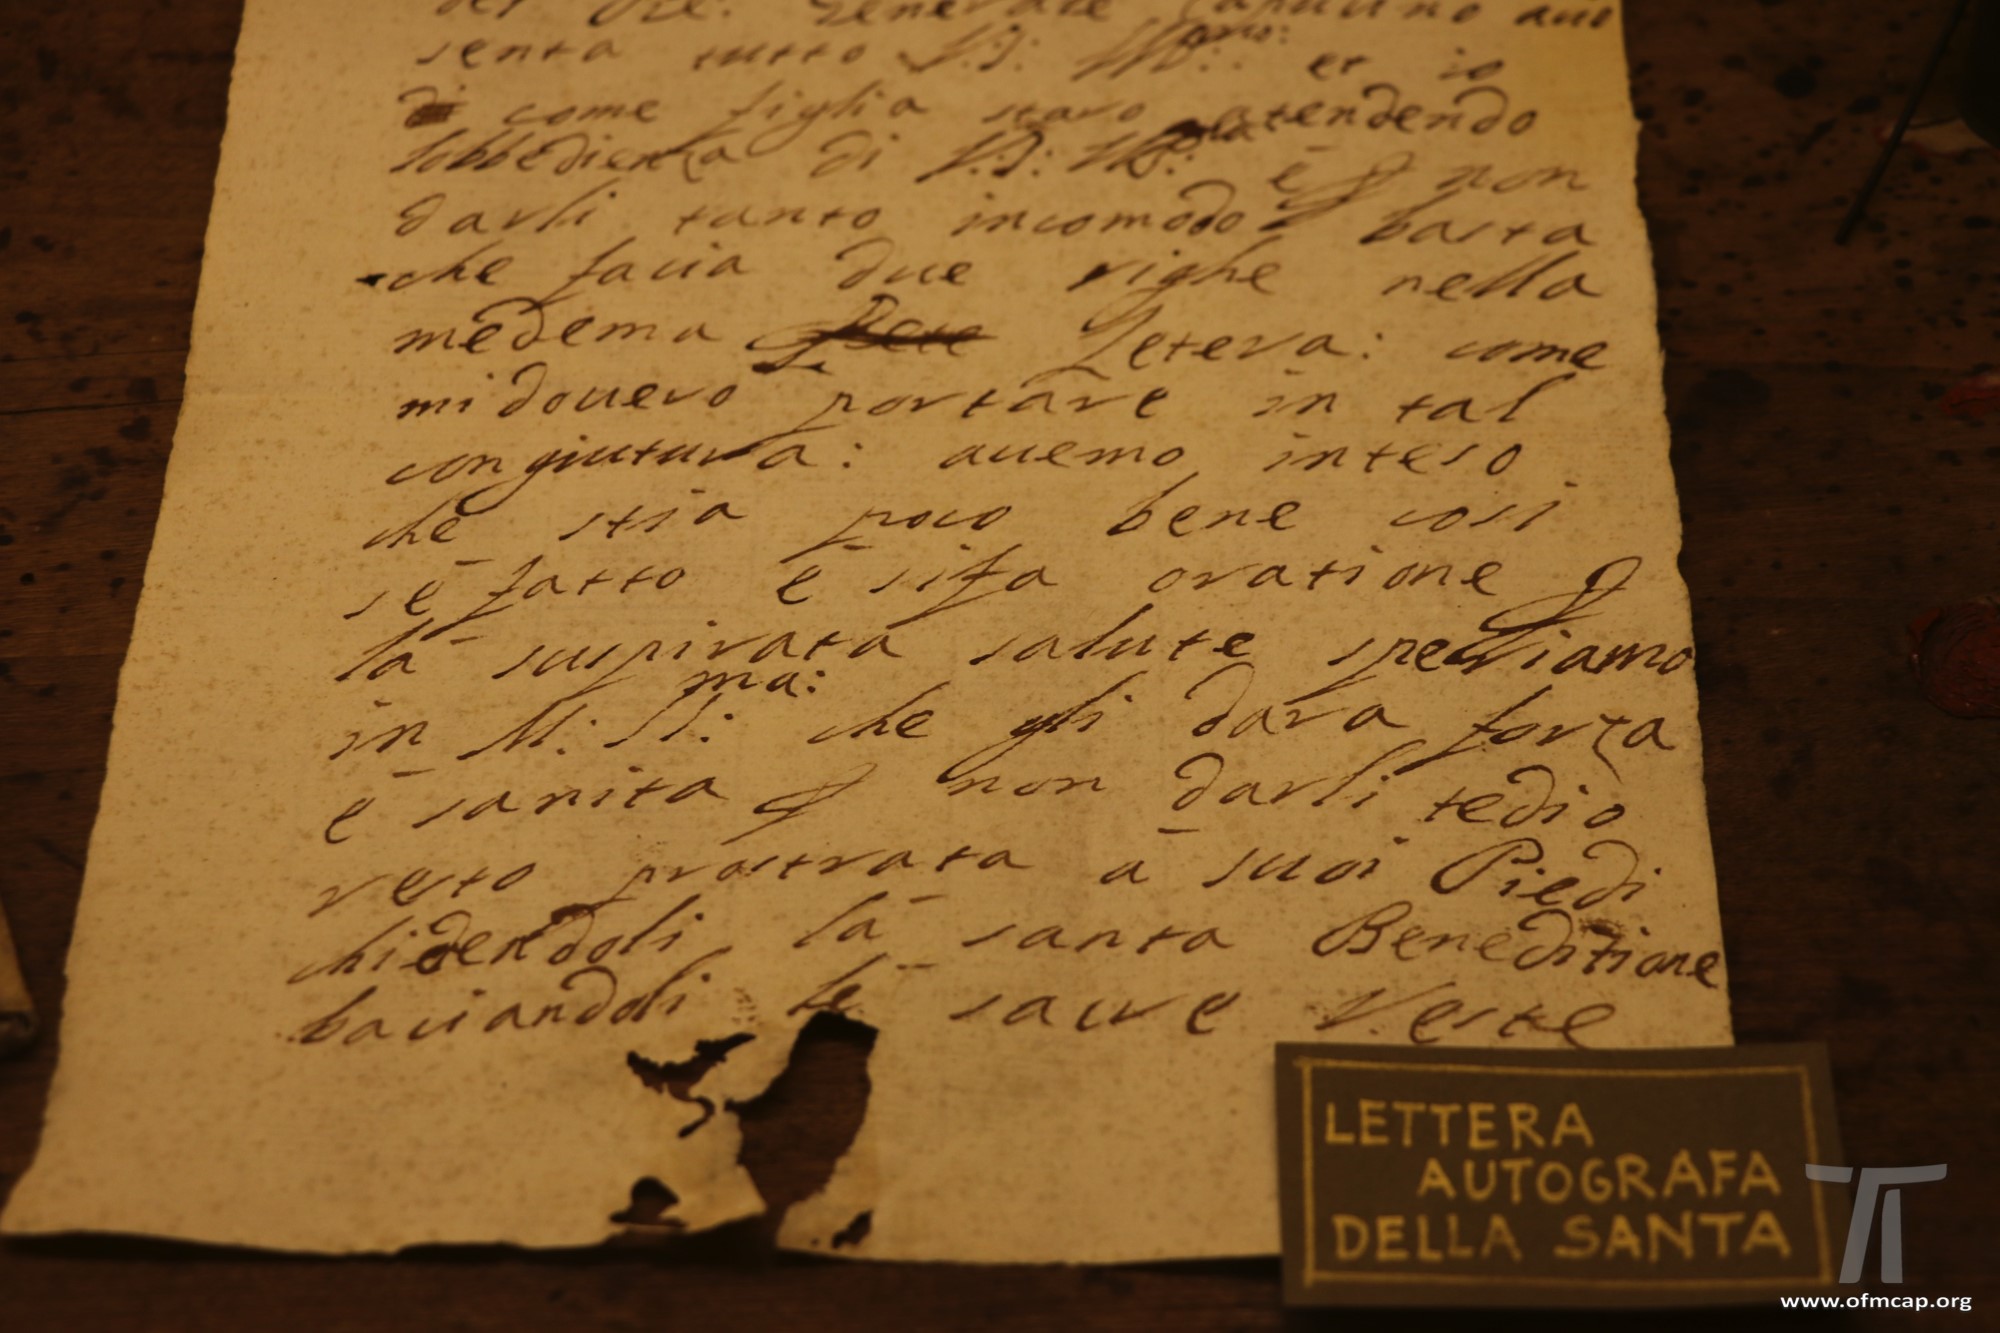 del Pre. Generale Capucino auo
senta tutto V.S: Ill:ma: et io
come figlia staro atendendo
lobbedienza di V.S: Ill:ma è non
darli tanto incomodo basta
che facia due righe nella
medema Letera: come
mi douero portare in tal
congiutura: auemo inteso
che stia poco bene cosi
sè fatto è sifa oratione ꝑ
là suspirata salute speriamo
in M: SS:ma: che gli dara forza
è sanita ꝑ non darli tedio
resto prostrata à suoi Piedi
chidendoli là santa Beneditione
baciandoli le sacre Veste
LETTERA
AUTOGRAFA
DELLA SANTA
www.ofmcap.org